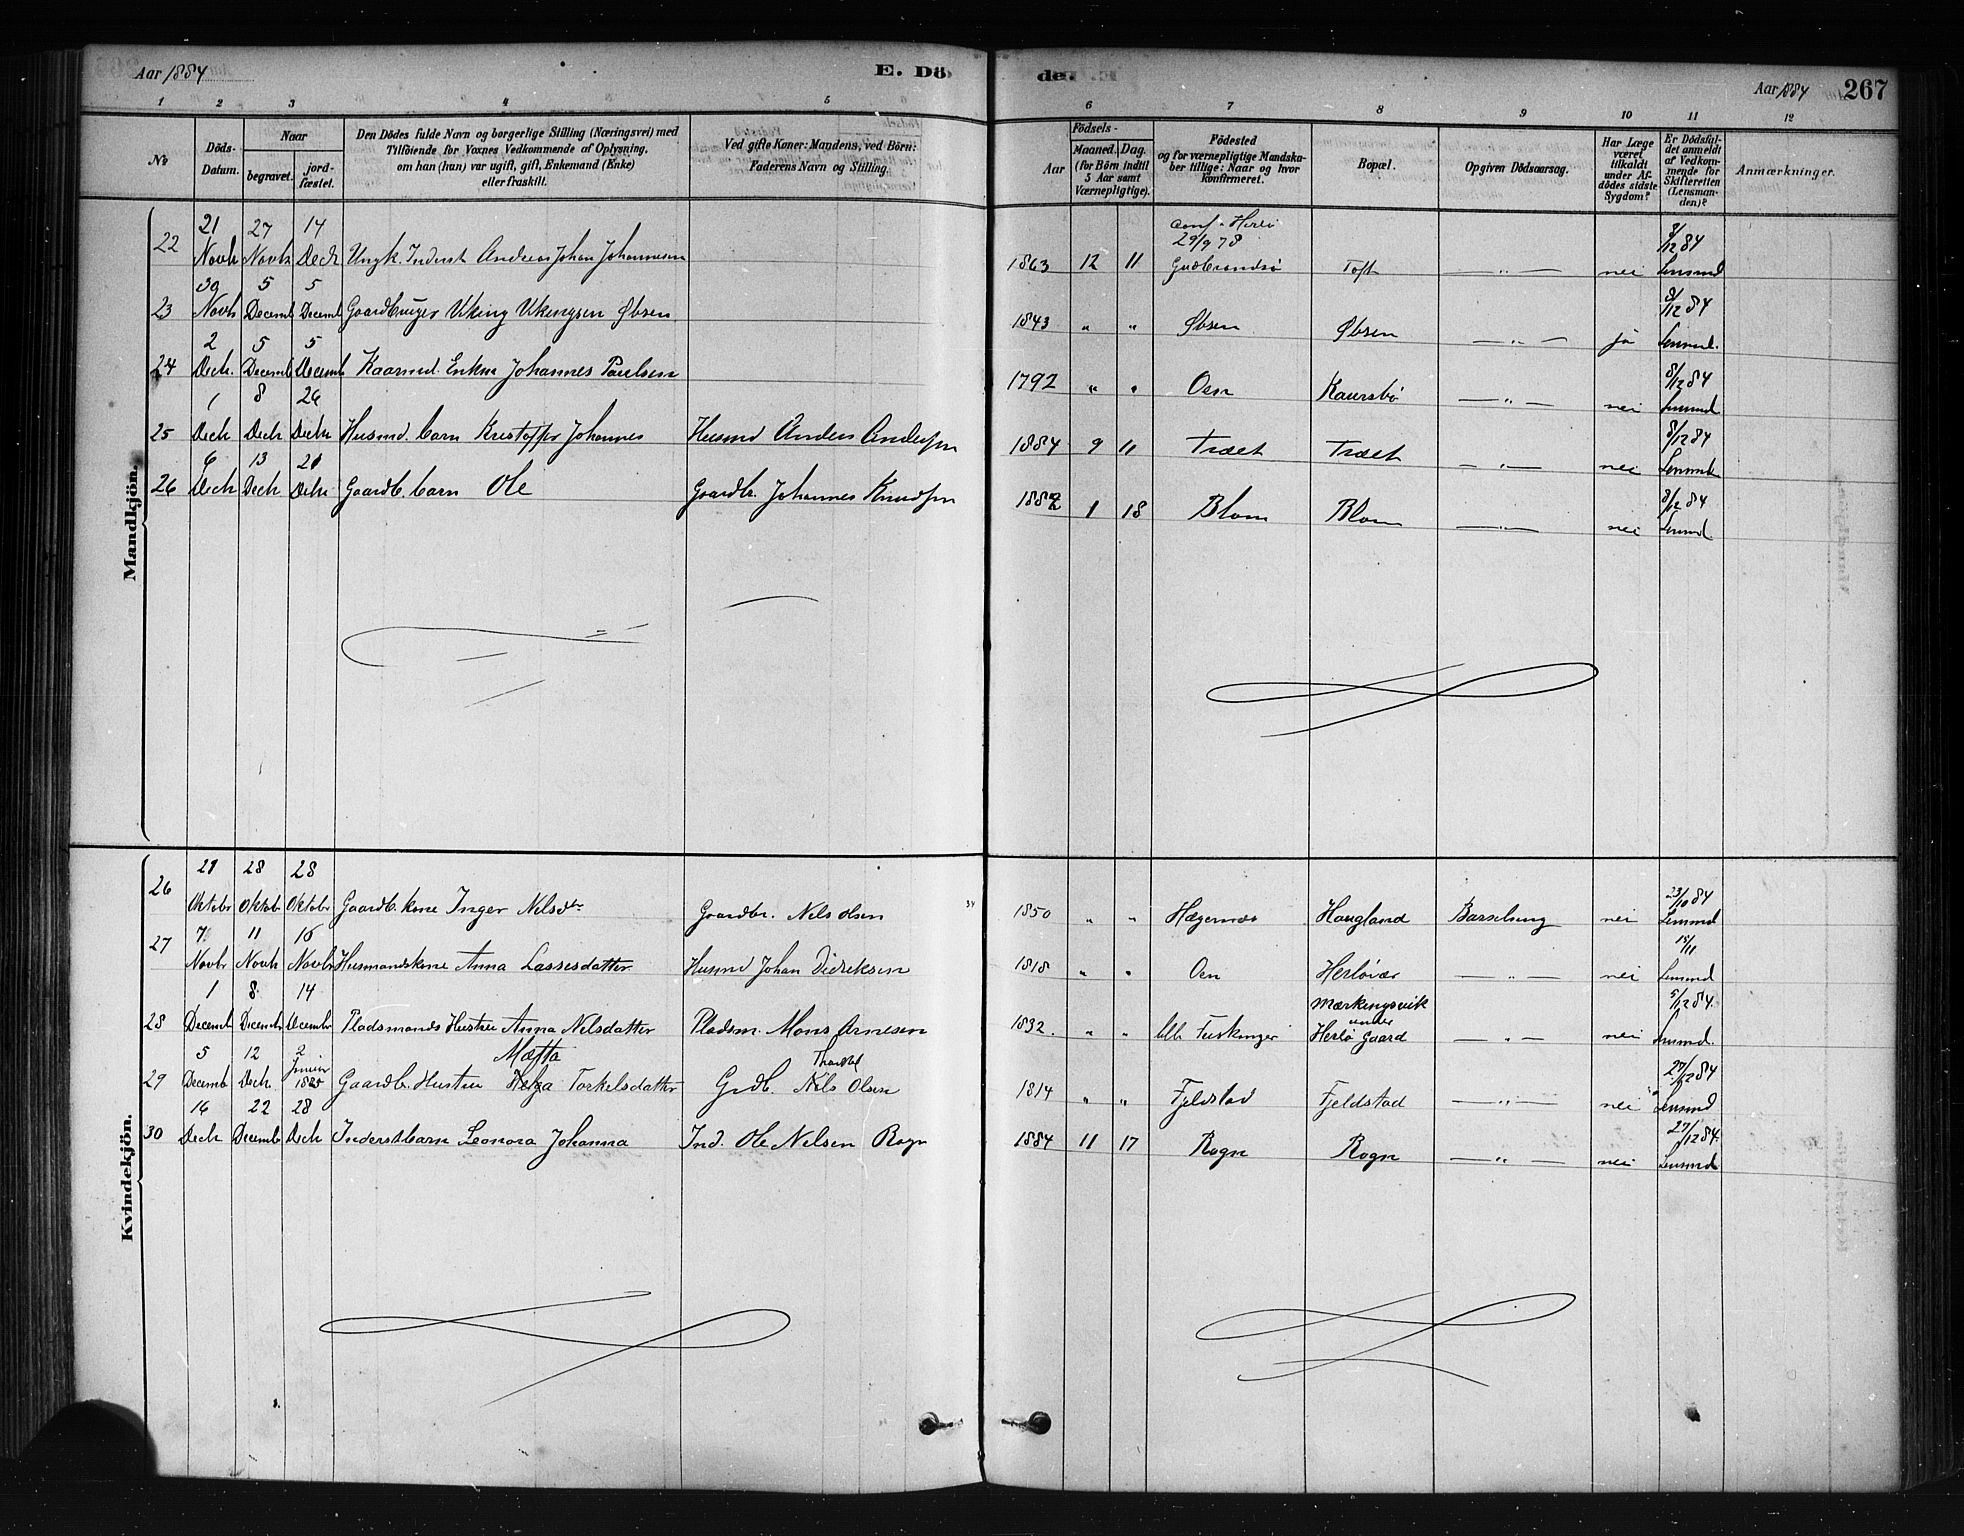 Aar 1884 E. Dö
den. Aar 1884 267
1 2 3 4 5 6 7 8 9 10 11 12
No
Döds-Datum.
Naar
begravet.
jord-fæstet.
Den Dödes fulde Navn og borgerlige Stilling (Næringsvei) med
Tilföiende for Voxnes Vedkommende af Oplysning,
om han (hun) var ugift, gift, Enkemand (Enke)
eller fraskilt.
Ved gifte Koner: Mandens, ved Börn:
Faderens Navn og Stilling.
Födsels-
Aar
Maaned. Dag.
(for Börn indtil
5 Aar samt
Værnepligtige).
Födested
og for værnepligtige Mandska-
ber tillige: Naar og hvor
konfirmeret.
Bopæl.
Opgiven Dödsaarsag.
Har Læge
været
tilkaldt
under Af-
dödes sidste
Sygdom?
Er Dödsfal-
det anmeldt
af Vedkom-
mende for
Skifteretten
(Lensman-
den)?
Anmærkninger.
Mandkjön.
22 21 Novb 27 Novb 14 Decb Ungk. Inderst Andreas Johan Johannesen 1863 12 11 Conf. Herlö 29/9 78 Gudbrandsö Toft — " — nei 8/12 84 Lensmd
23 30 Novb 5 Decemb 5 Decemb Gaardbruger Viking Vikingsen Øbsen 1843 " " Øbsen Øbsen — " — ja 8/12 84 Lensmd.
24 2 Decb. 5 Decemb 5 Decemb Kaarmd. Enkm Johannes Paulsen 1792 " " Oen Kaursbö — " — nei 8/12 84 Lensmd
25 1 Decb 8 Decb 26 Decbr Husmd. barn Kristoffer Johannes Husmd Anders Andersen 1884 9 11 Træet Træet — " — nei 8/12 84 Lensmd
26 6 Decb 13 Decb 21 Decbr Gaardb. barn Ole Gaardbr. Johannes Knudsen 1882 1 18 Blom Blom — " — nei 8/12 84 Lensmd.
Kvindekjön.
26 21 Oktobr 28 Oktob 28 Oktobr Gaardb. kone Inger Nelsdtr Gaardbr. Nils Olsen 34 1850 " " Hægernæs Haugland Barselseng nei 23/10 84 Lensmd
27 7 Novbr 11 Novb 16 Novbr Husmandskone Anna Lassesdatter Husmd Johan Didriksen 1818 " " Oen Herløvær — " — nei 15/11 Lensmd
28 1 Decemb 8 Decembr 14 Decembr Pladsmands Hustru Anna Nilsdatter Pladsm. Mons Arnesen 1832. " " Mærkingsvik under Herlö Gaard — " — nei 5/12 84. Lensmd.
29 5 Decemb 12 Decb. 2 Januar 1885 Gaardb. Hustru Mætta Torkelsdatter Grdb. Nils Olsen 1814 " " Fjeldstad Fjeldstad — " — nei 27/12 84 Lensmd
30 16 Decb 22 Decemb 28 Decb Inderstbarn Leonora Johanna Ind. Ole Nelsen Rogn 1884 11 17 Rogn Rogn — " — nei 27/12 84. Lensmd